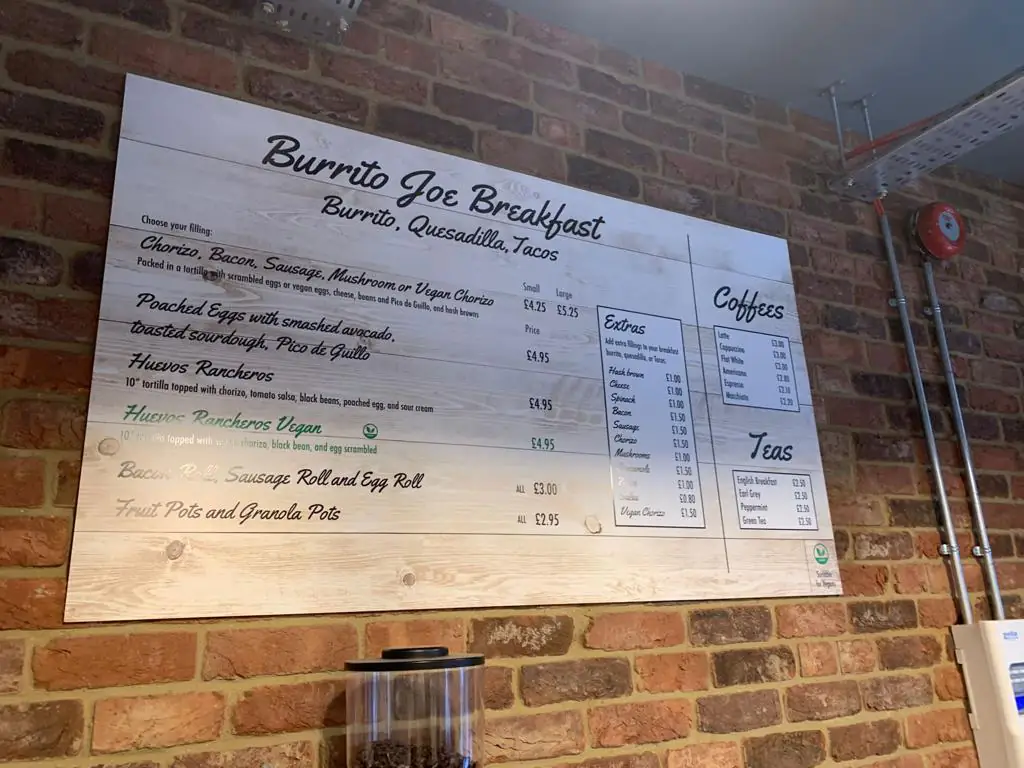 Burrito Joe Breakfast
Burrito, Quesadilla, Tacos
Choose your filling:
Small Large
Chorizo, Bacon, Sausage, Mushroom or Vegan Chorizo £4.25 £5.25
Packed in a tortilla with scrambled eggs or vegan eggs, cheese, beans and Pico de Guillo, and hash browns
Price
Poached Eggs with smashed avocado,
toasted sourdough, Pico de Guillo £4.95
Huevos Rancheros
10" tortilla topped with chorizo, tomato salsa, black beans, poached egg, and sour cream £4.95
Huevos Rancheros Vegan
10" topped with chorizo, black bean, and egg scrambled £4.95
Bacon Roll, Sausage Roll and Egg Roll ALL £3.00
Fruit Pots and Granola Pots ALL £2.95
Extras
Add extra fillings to your breakfast
burrito, quesadilla, or Tacos.
Hash brown £1.00
Cheese £1.00
Spinach £1.00
Bacon £1.50
Sausage £1.50
Chorizo £1.50
Mushrooms £1.00
£1.50
£1.00
£0.80
Vegan Chorizo £1.50
Coffees
Latte £3.00
Cappuccino £3.00
Flat White £3.00
Americano £2.80
Espresso
Macchiato £2.20
Teas
English Breakfast £2.50
Earl Grey £2.50
Peppermint £2.50
Green Tea £2.50
Suitable
for Vegans